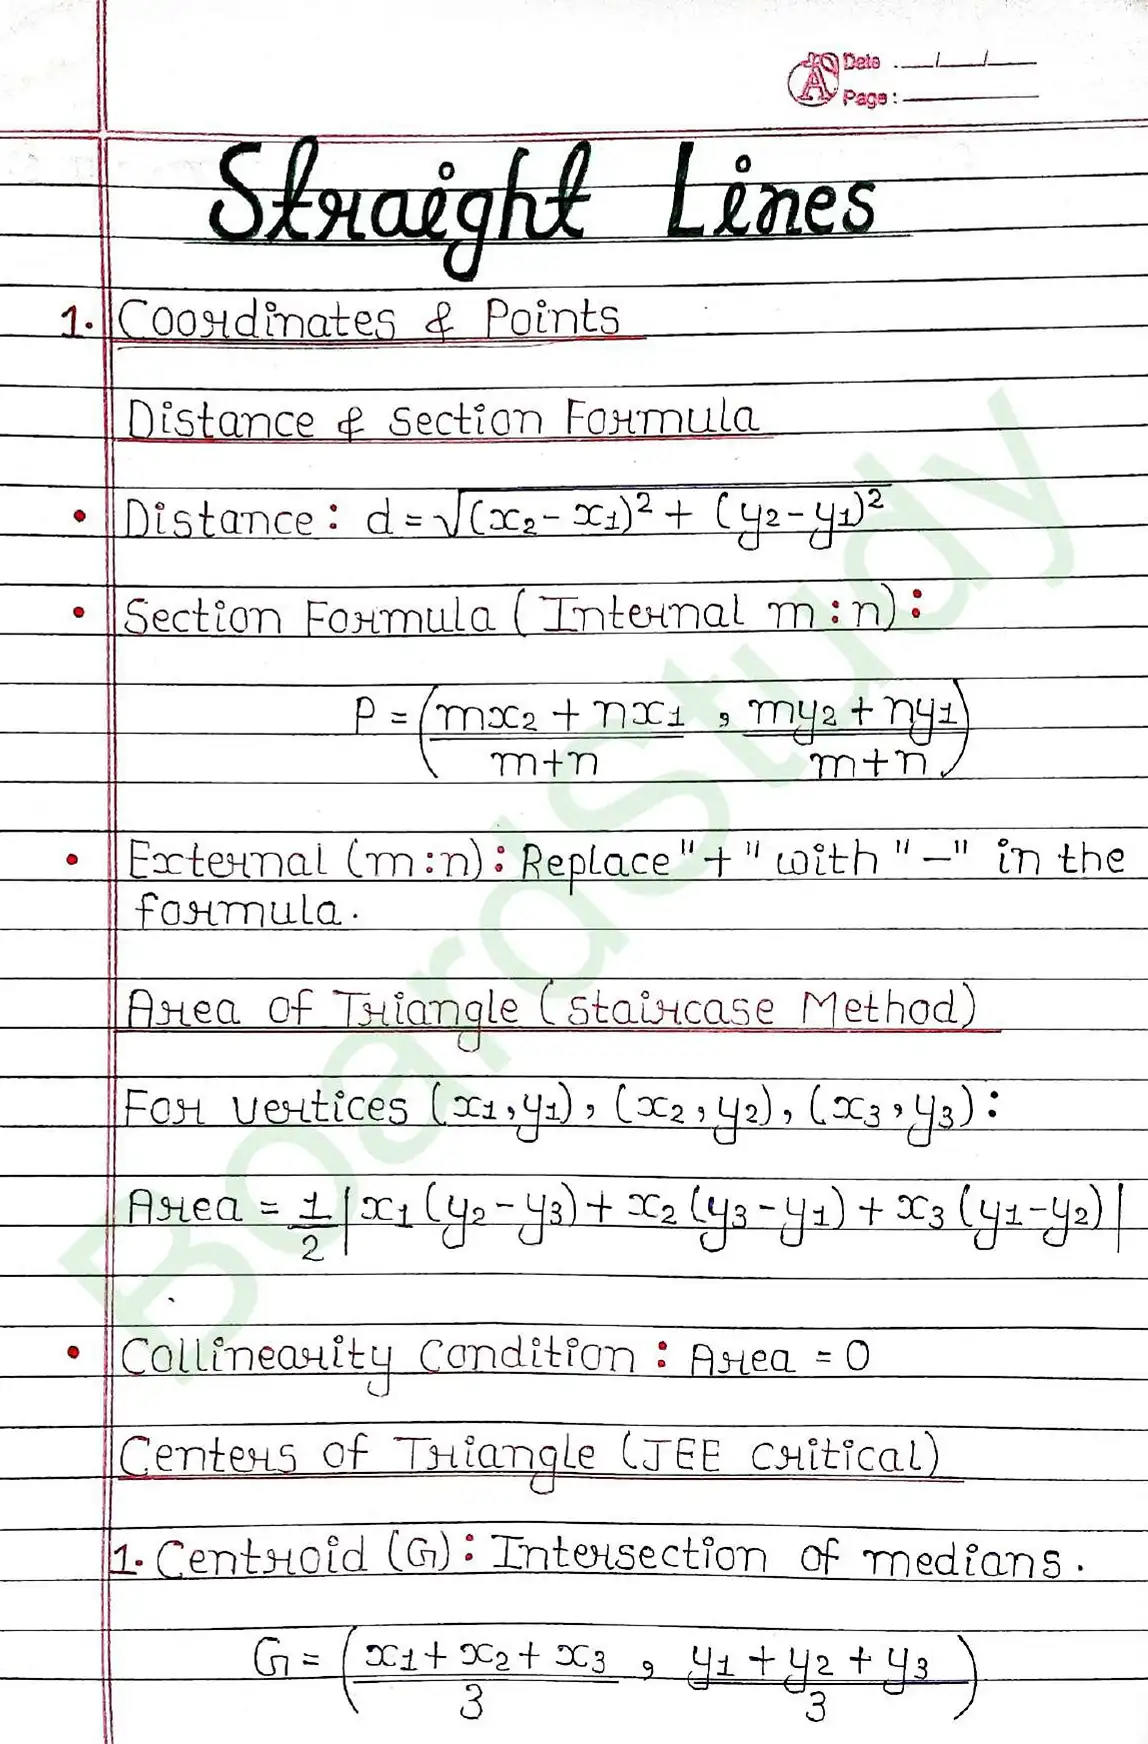 Date : __/__/__
Page : ______
Straight Lines
1. Coordinates & Points
Distance & Section Formula
• Distance : d = √(x₂ - x₁)² + (y₂ - y₁)²
• Section Formula (Internal m : n) :
P = (mx₂ + nx₁ / m+n , my₂ + ny₁ / m+n)
• External (m : n) : Replace "+" with "–" in the
formula.
Area of Triangle (Staircase Method)
For vertices (x₁, y₁), (x₂, y₂), (x₃, y₃) :
Area = 1/2 | x₁ (y₂ - y₃) + x₂ (y₃ - y₁) + x₃ (y₁ - y₂) |
• Collinearity Condition : Area = 0
Centers of Triangle (JEE Critical)
1. Centroid (G) : Intersection of medians.
G = (x₁ + x₂ + x₃ / 3 , y₁ + y₂ + y₃ / 3)
BoardStudy